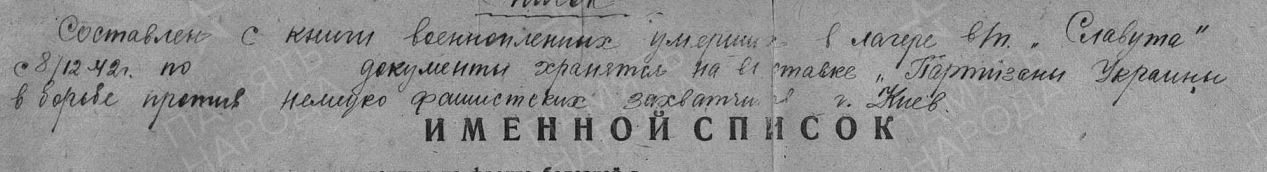 Список
Составлен с книги военнопленных умерших в лагере в/п. „Славута"
с 8/12 42г. по документы хранятся на выставке „Партизани Украины
в борьбе против немецко фашистских захватчиков г. Киев.
ИМЕННОЙ СПИСОК